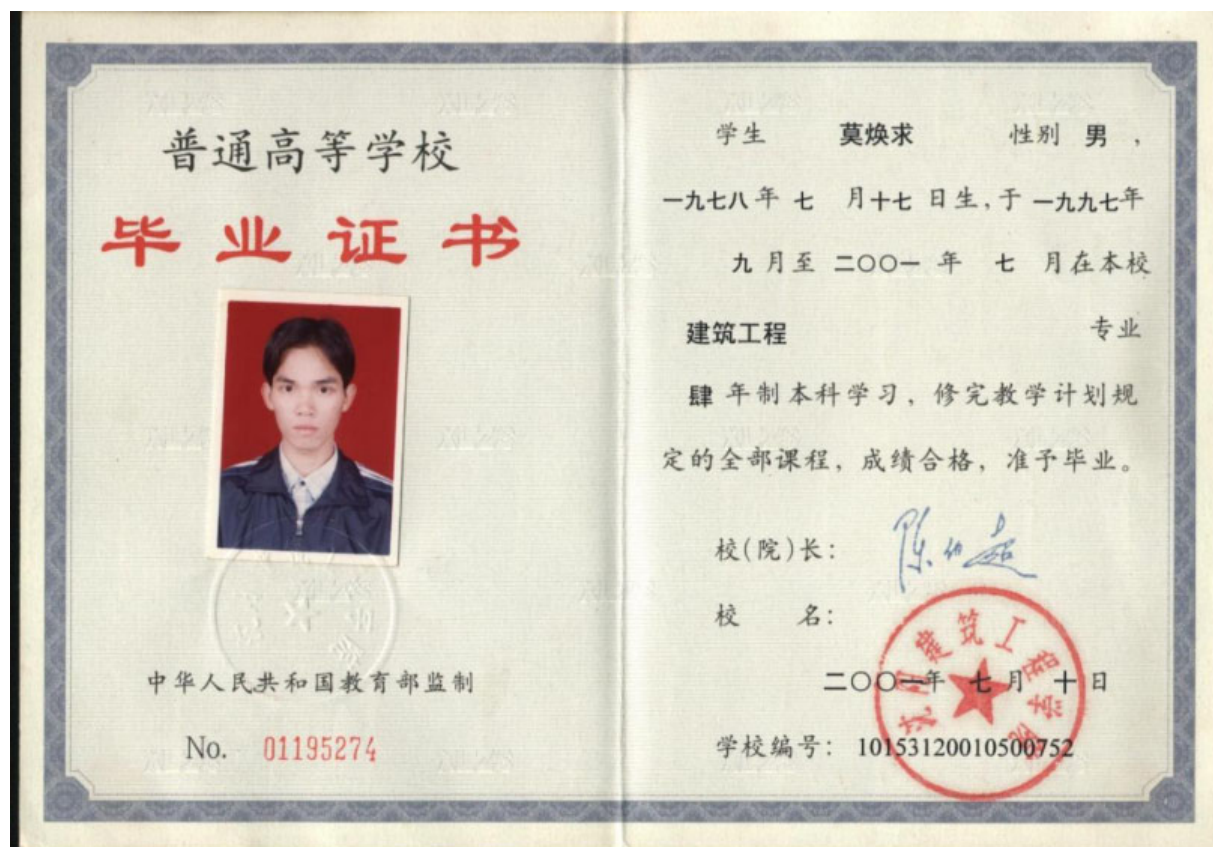 普通高等学校
毕业证书
中华人民共和国教育部监制
No. 01195274
学生 莫焕求 性别 男，
一九七八年 七 月十七 日生，于 一九九七年
九 月至 二〇〇一 年 七 月在本校
建筑工程 专业
肆 年制本科学习，修完教学计划规
定的全部课程，成绩合格，准予毕业。
校(院)长：
校 名：
沈阳建筑工程学院
二〇〇一年 七 月 十 日
学校编号：10153120010500752